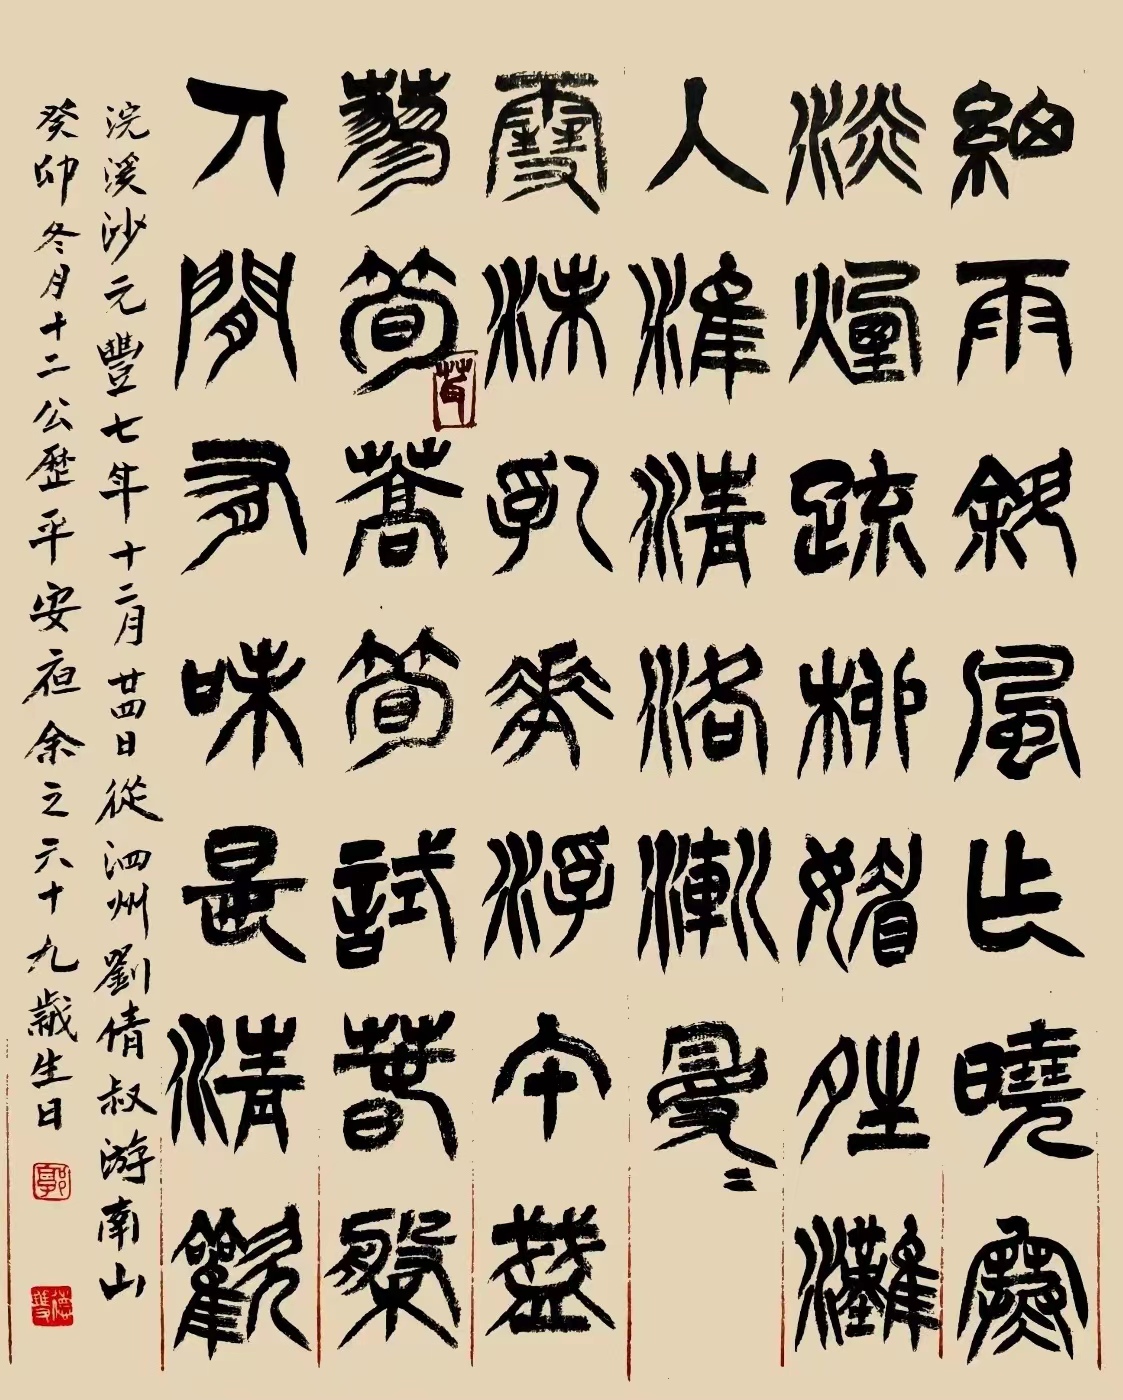 細雨斜風乍曉寒
淡煙疏柳媚夝灘
入淮清洛漸曼〻
雪沫乳花浮午盞
蓼筍蒿筍試春槃
茸
人間有味是清歡
浣溪沙元豐七年十二月廿四日從泗州劉倩叔游南山
癸卯冬月十二公歷平安夜余之六十九歲生日
郭